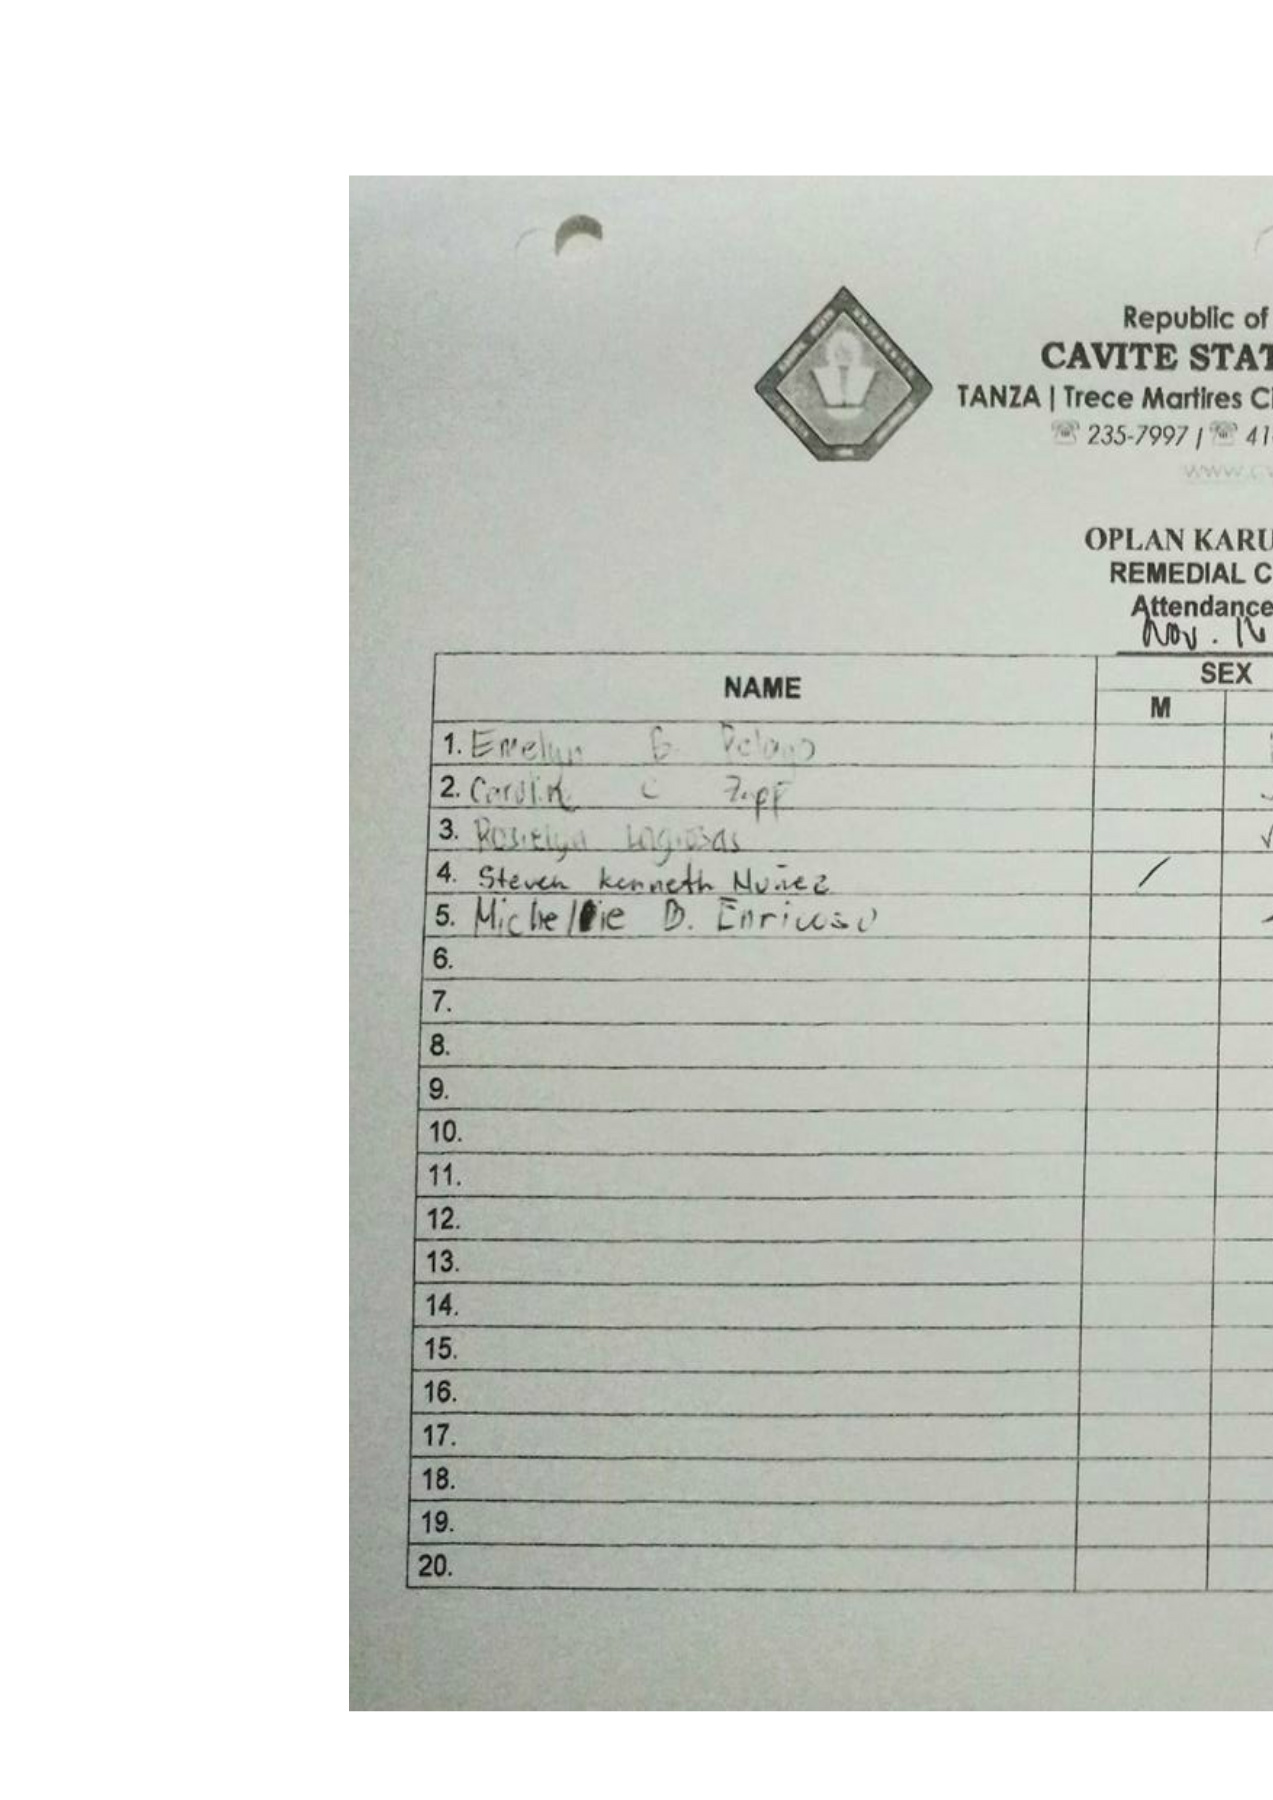 Republic of
CAVITE STAT
TANZA | Trece Martires Ci
☏ 235-7997 / ☏ 41
www.cv
OPLAN KARU
REMEDIAL C
Attendance
Nov. 16
NAME SEX
M
1. Emelyn B. Pelayo
2. C
3. Roselyn
4. Steven Kenneth Nuñez
5. D.
6.
7.
8.
9.
10.
11.
12.
13.
14.
15.
16.
17.
18.
19.
20.